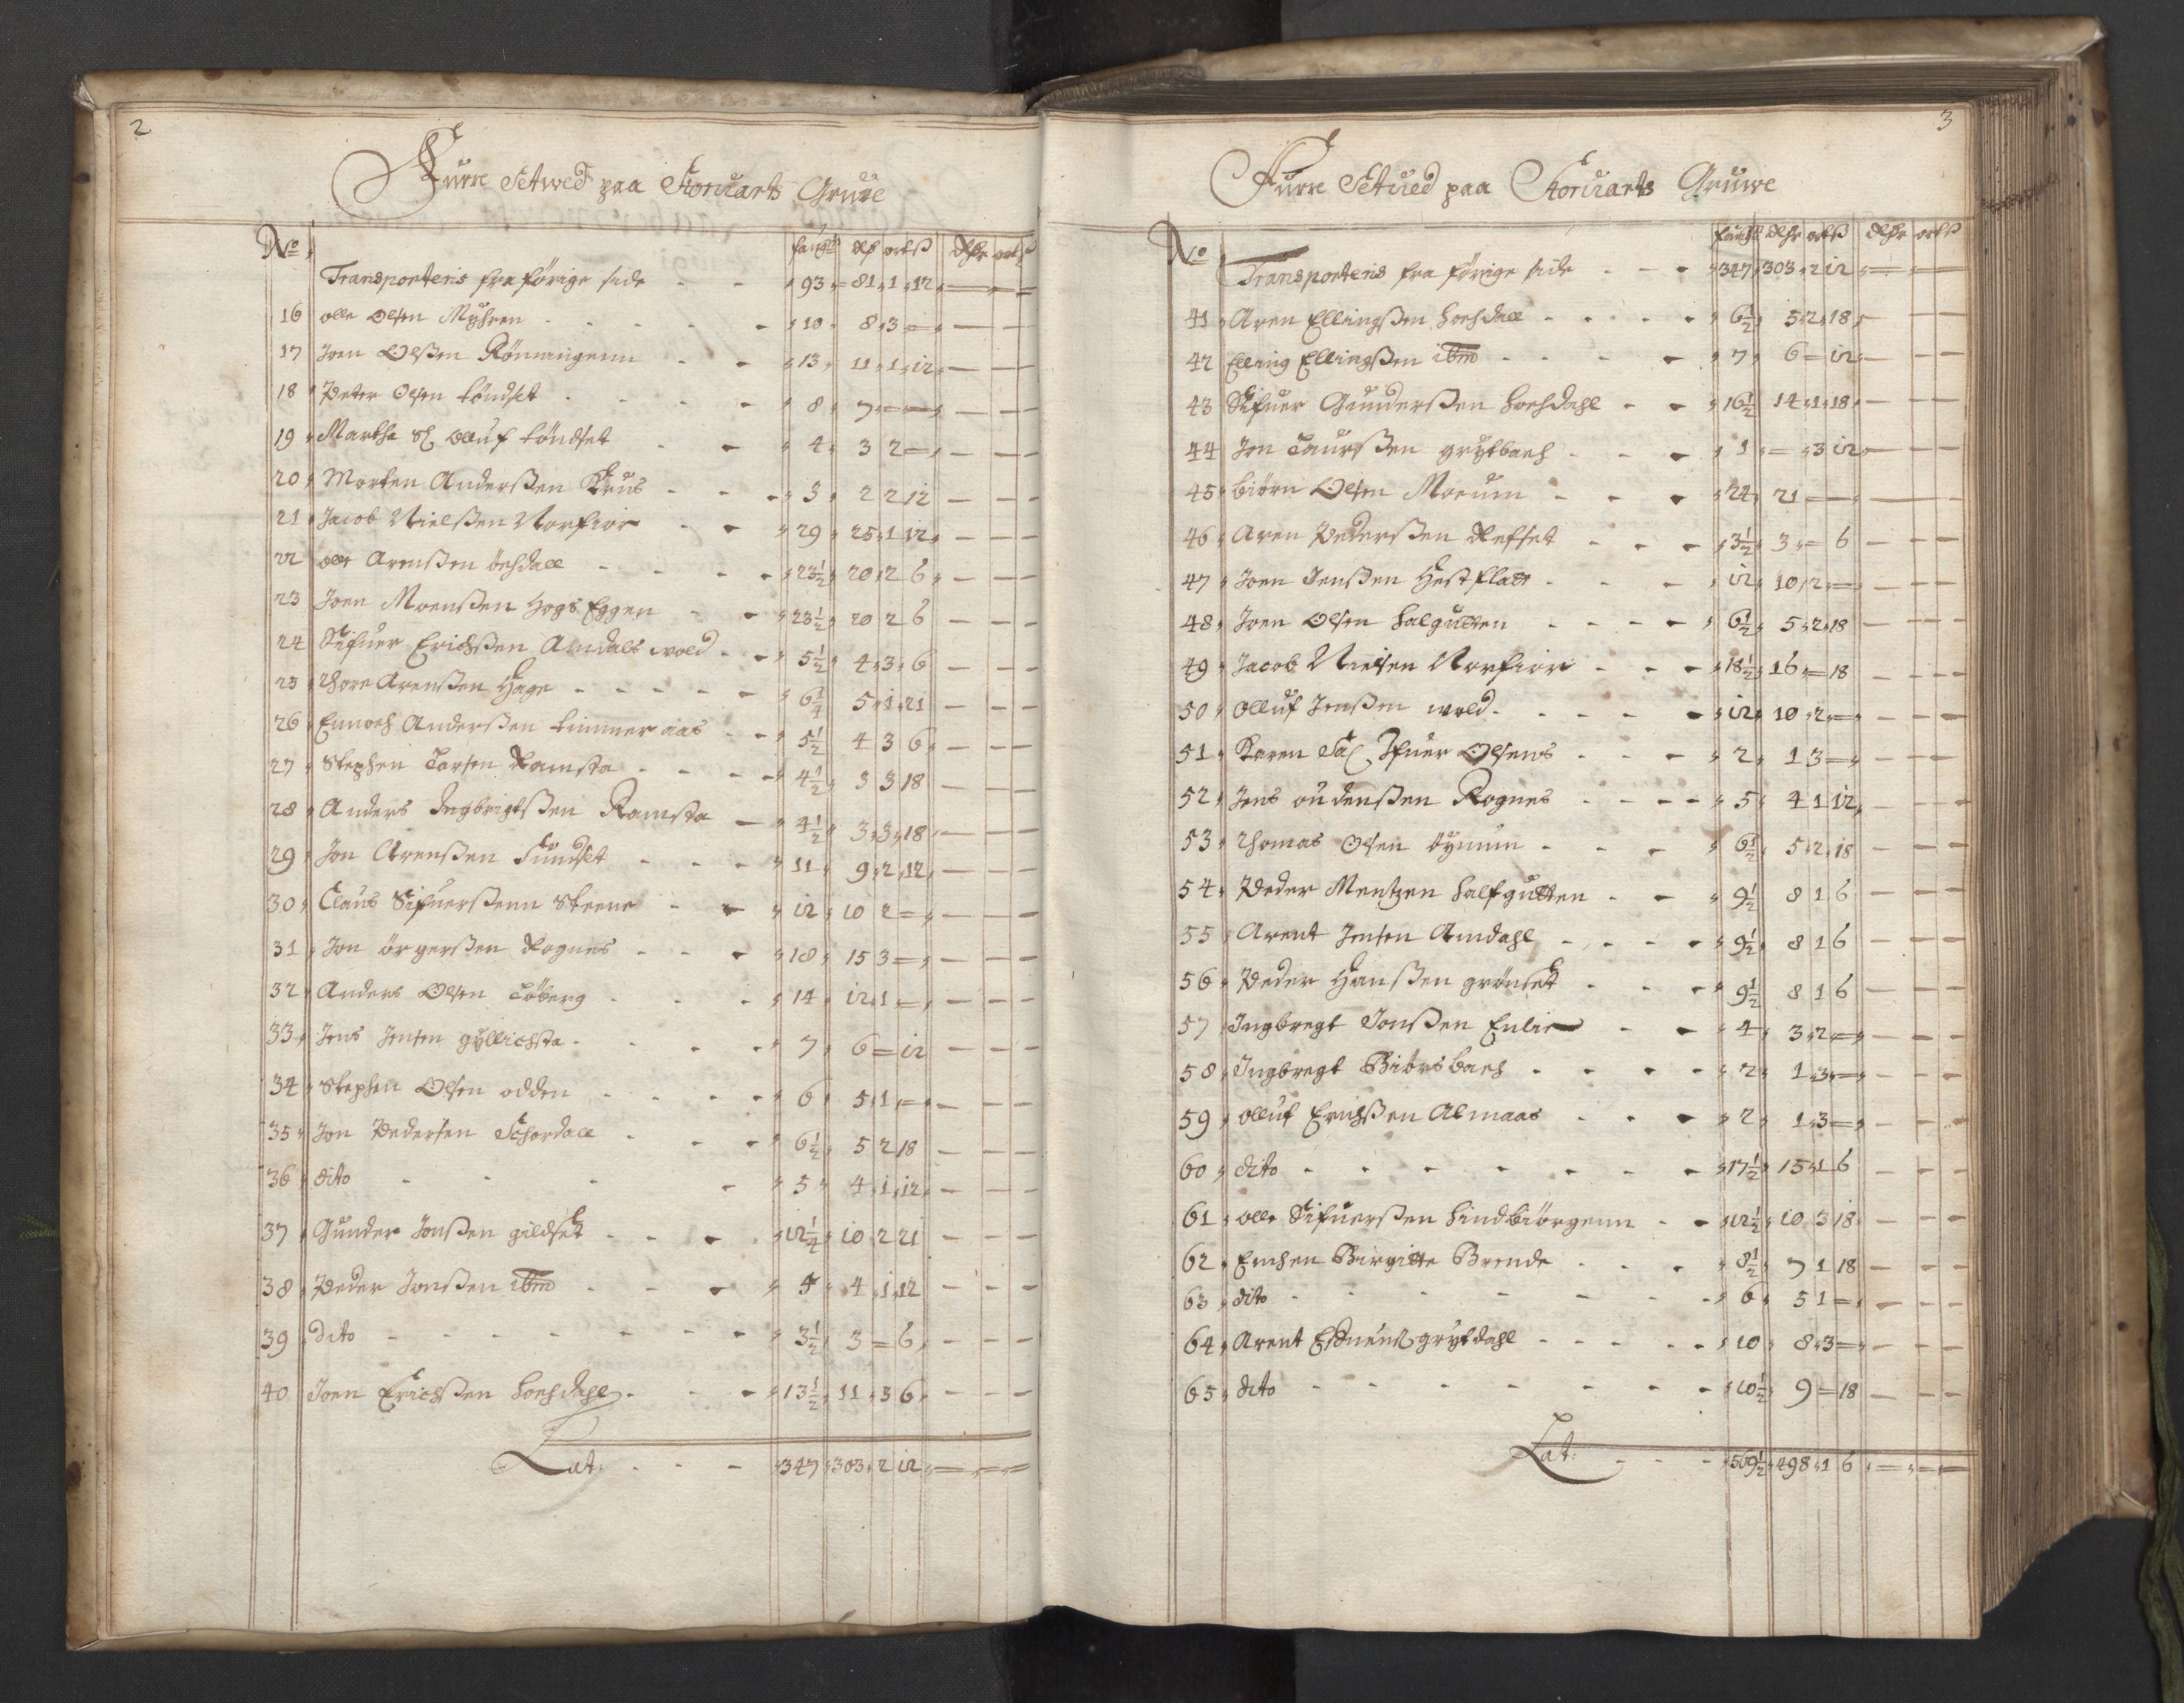 2
Furre Setwed paa Storuarts Gruve
No faug dlr ort ß Rdlr ort ß
Transporteris fra förige side - - 93 = 81 1 12
16 olle Olsen Myhren - - 10 8 3 =
17 Joen Olßen Rönningenn - - 13 11 1 12
18 Peter Olsen töndset - - 8 7 = =
19 Marthe Sl Olluf töndset - - 4 3 2 =
20 Morten Anderßen Krus - - 3 2 2 12
21 Jacob Nielßen Norfior - - 29 25 1 12
22 olle Arenßen öehdall - - 23½ 20 2 6
23 Joen Moenßen Hogs Eggen - - 23½ 20 2 6
24 Sifuer Erichßen Amdals wold - - 5½ 4 3 6
25 Thore Arenßen Hage - - 6¼ 5 1 21
26 Ennoch Anderßen timmer aas - - 5½ 4 3 6
27 Stephen Torsen Ramsta - - 4½ 3 3 18
28 Anders Ingbrigtßen Ramsta - 4½ 3 3 18
29 Jon Arenßen Sundset - - 11 9 2 12
30 Claus Sifuerßenn Steene - - 12 10 2 =
31 Jon örgerßen Rognes - - 18 15 3 =
32 Anders Olsen Töberg - - 14 12 1 =
33 Jens Jensen gyllichsta - - 7 6 = 12
34 Stephen Olsen odden - - 6 5 1 =
35 Jon Pedersen Schordall - - 6½ 5 2 18
36 dito - - 5 4 1 12
37 Gunder Jonßen gildset - - 12¼ 10 2 21
38 Peder Jonßen ibm - - 5 4 1 12
39 dito - - 3½ 3 = 6
40 Joen Erichßen hoehdahl - - 13½ 11 3 6
Lat: - - 347 303 2 12
3
Furre Setued paa Storuarts Gruwe
No faug dlr ort ß Rdlr ort ß
Transporteris fra förrige side - - 347 303 2 12
41 Aren Ellingßen hoehdall - - 6½ 5 2 18
42 Elling Ellingßen ibm - - 7 6 = 12
43 Sifuer Gunderßen hoehdahl - - 16½ 14 1 18
44 Jon Taurßen grytbach - - 1 = 3 12
45 biörn Olsen Moeum - - 24 21 =
46 Aren Pederßen Refset - - 3½ 3 = 6
47 Joen Jenßen Hestflatt - - 12 10 2 =
48 Joen Olsen halgutten - - 6½ 5 2 18
49 Jacob Nielsen Norfior - - 18½ 16 = 18
50 Olluf Jenßen wold - - 12 10 2 =
51 Karen Sal Ifuer Olsens - - 2 1 3 =
52 Jens oudenßen Rognes - - 5 4 1 12
53 Thomas Olsen bynum - - 6½ 5 2 18
54 Peder Mentzen halfgutten - - 9½ 8 1 6
55 Arent Jensen Amdahl - - 9½ 8 1 6
56 Peder Hanßen grönset - - 9½ 8 1 6
57 Ingbregt Jonßen Enlie - - 4 3 2 =
58 Ingbregt Biörsbach - - 2 1 3 =
59 olluf Erichßen Almaas - - 2 1 3 =
60 dito - - 17½ 15 1 6
61 olle Sifuerßen hindbiörgenn - - 12½ 10 3 18
62 Enchen Birgitte Brende - - 8½ 7 1 18
63 dito - - 6 5 1 =
64 Arent grytdahl - - 10 8 3 =
65 dito - - 10½ 9 = 18
Lat: - - 569½ 498 1 6